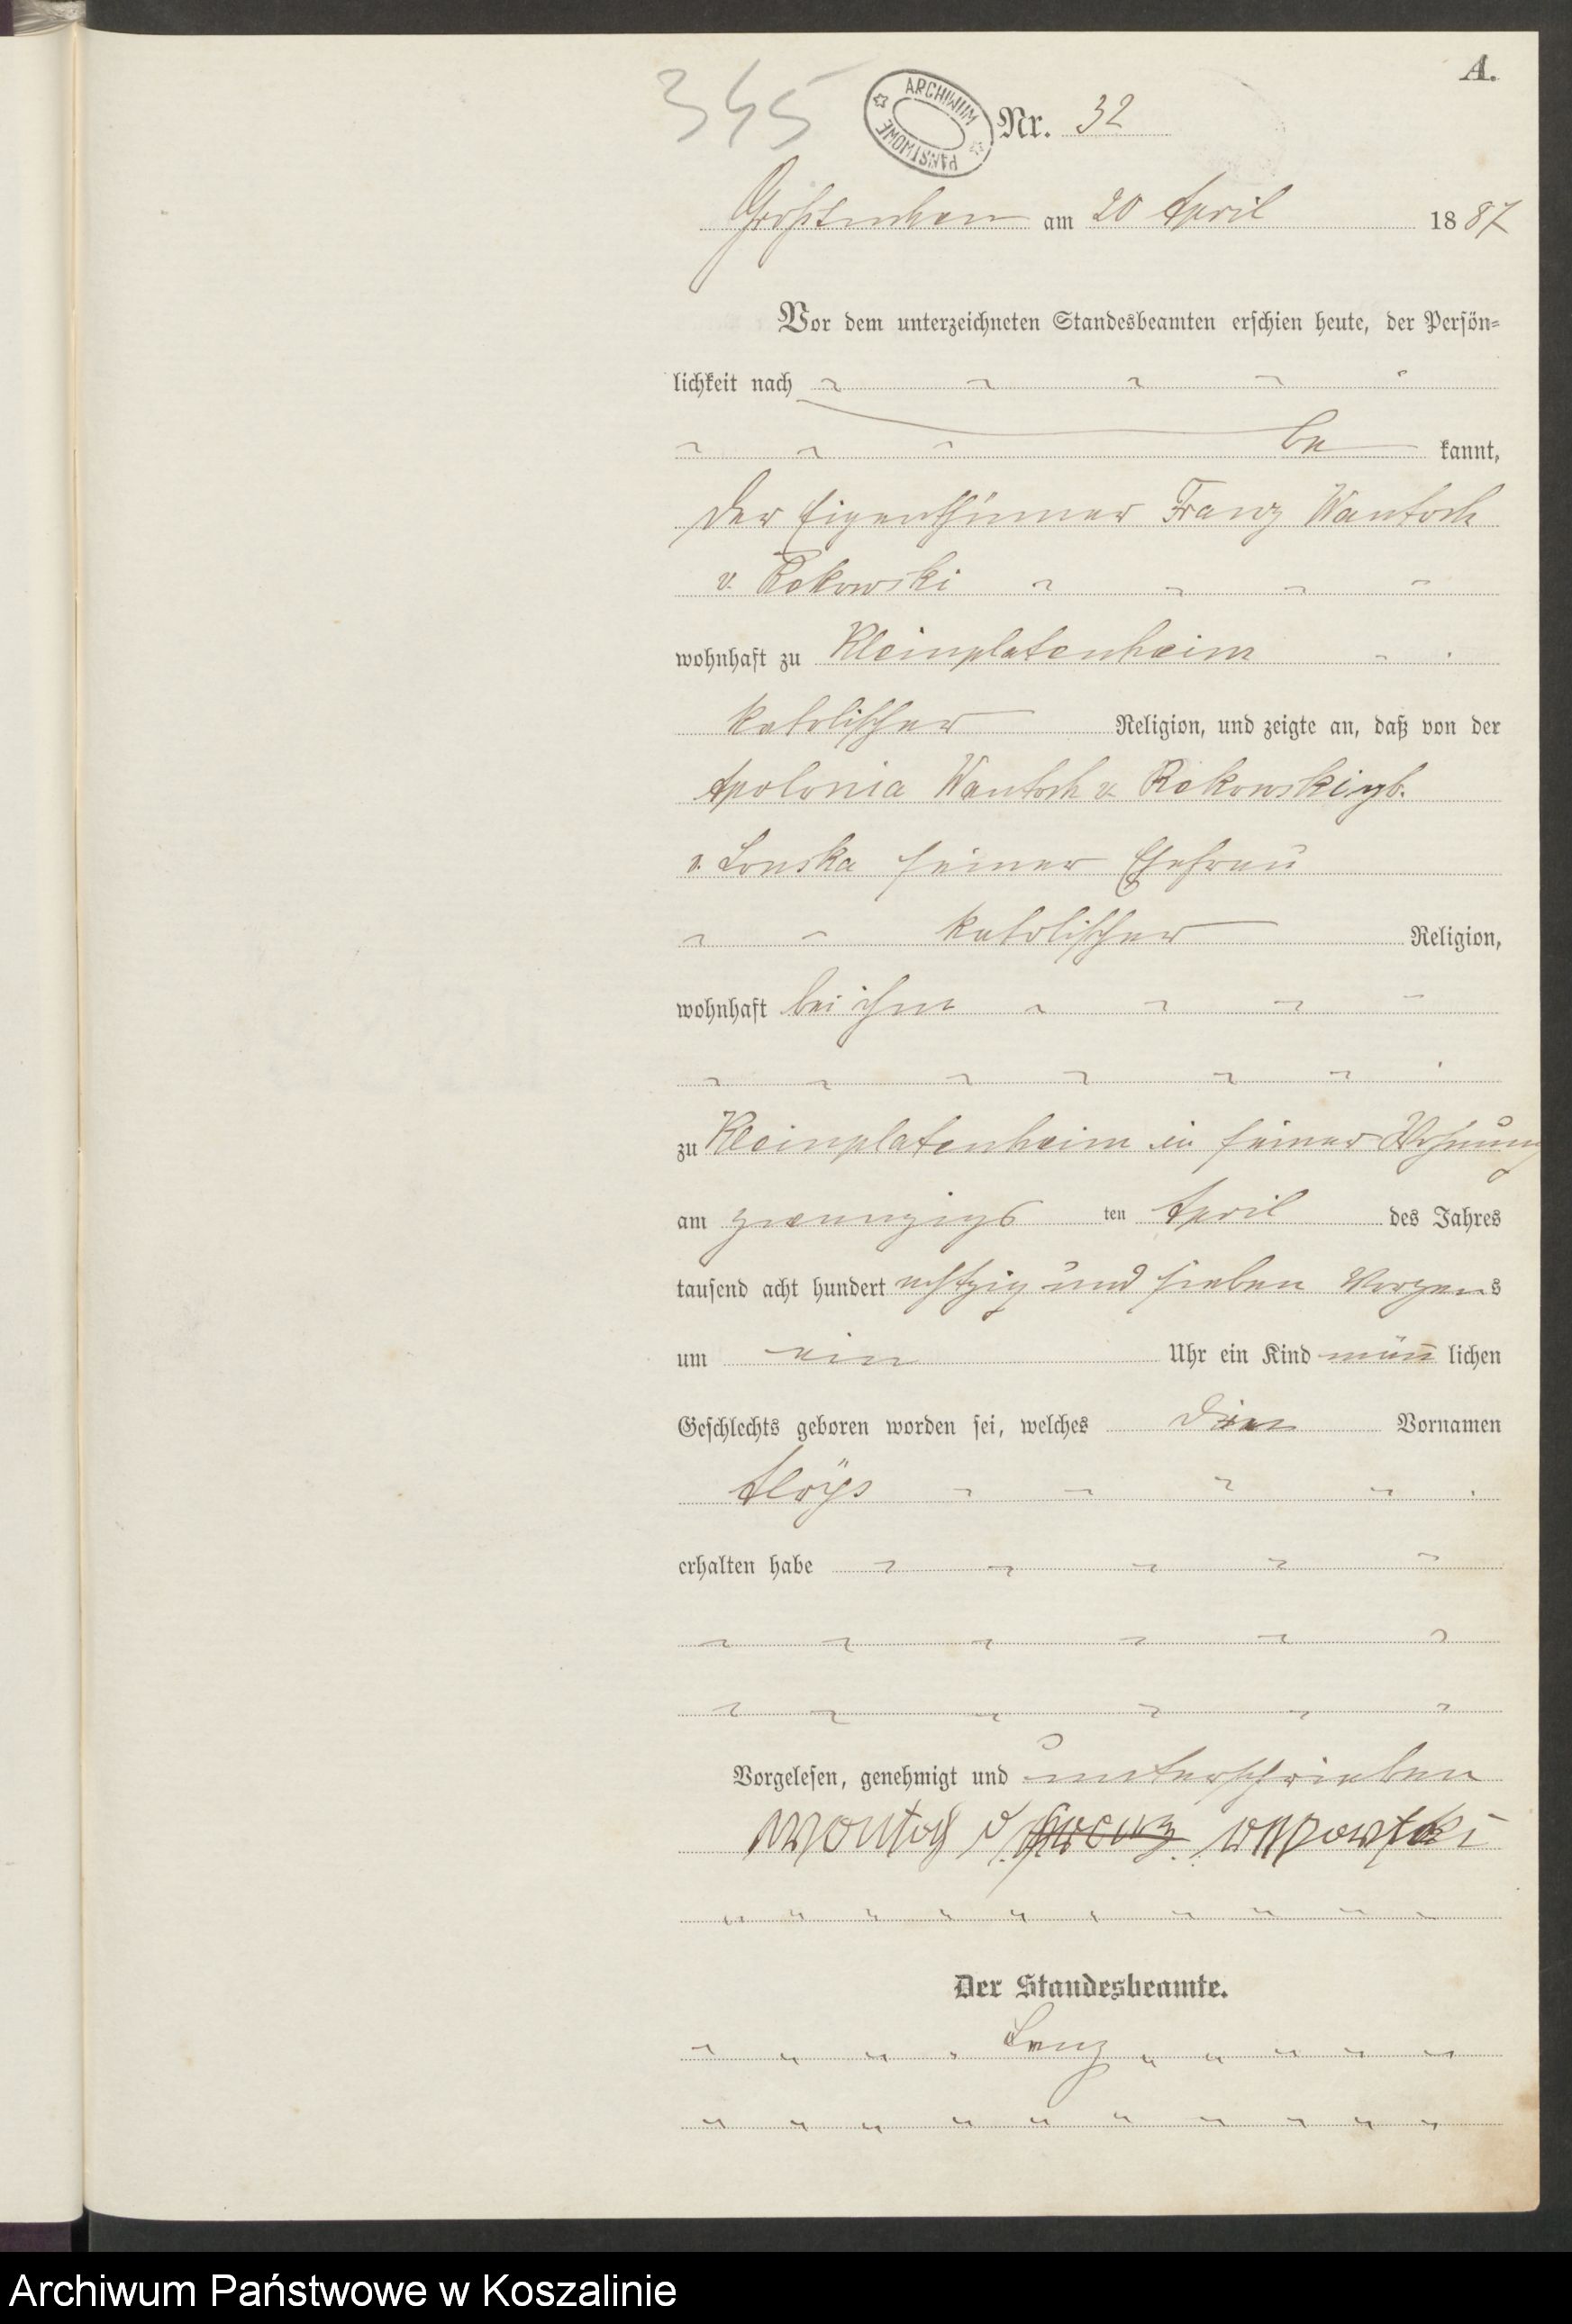 A.
345
ARCHIWUM PAŃSTWOWE
Nr. 32
Großtuchen am 20 April 1887
Vor dem unterzeichneten Standesbeamten erschien heute, der Persön-
lichkeit nach
be kannt,
der Eigenthümer Franz Wantoch
v. Rekowski
wohnhaft zu Kleinplatenheim
katolischer Religion, und zeigte an, daß von der
Apolonia Wantoch v. Rekowski gb.
v. Lonska seiner Ehefrau
katolischer Religion,
wohnhaft bei ihm
zu Kleinplatenheim in seiner Wohnung
am zwanzigs ten April des Jahres
tausend acht hundert achtzig und sieben Morgens
um ein Uhr ein Kind männ lichen
Geschlechts geboren worden sei, welches den Vornamen
Aloys
erhalten habe
Vorgelesen, genehmigt und unterschrieben
Wontoch v
Der Standesbeamte.
Lenz
Archiwum Państwowe w Koszalinie